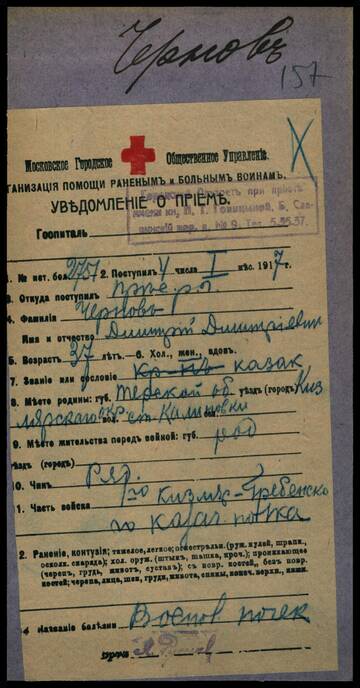 Черновъ
157
Московское Городское Общественное Управленіе.
ГАНИЗАЦІЯ ПОМОЩИ РАНЕНЫМЪ и БОЛЬНЫМЪ ВОИНАМЪ.
УВѢДОМЛЕНІЕ О ПРІЕМѢ.
Госпиталь
1. № ист. бол. 2751 2. Поступил 4 числа I мѣс. 1917 г.
3. Откуда поступил
4. Фамилія Черновъ
Имя и отчество Дмитрій Дмитріевич
5. Возраст 37 лѣт. 6. Хол., жен., вдов.
7. Званіе или сословіе казак
8. Мѣсто родины: губ. Терской об уѣзд (город) Киз
лярскаго окр. ст. Калиновки
9. Мѣсто жительства перед войной: губ. род
уѣзд (город)
10. Чин Ряд.
1. Часть войска 1го Кизл.-Гребенско
го казач полка
2. Раненіе, контузія: тяжелое, легкое; огнестрѣльн. (руж. пулей, шрапн.,
оскол. снаряда); хол. оруж. (штык, шашка, проч.); проникающее
(череп, грудь, живот, сустав); с повр. костей, без повр.
костей; черепа, лица, шеи, груди, живота, спины, конеч. верхн. нижн.
4 Названіе болѣзни Воспов почек
Врач